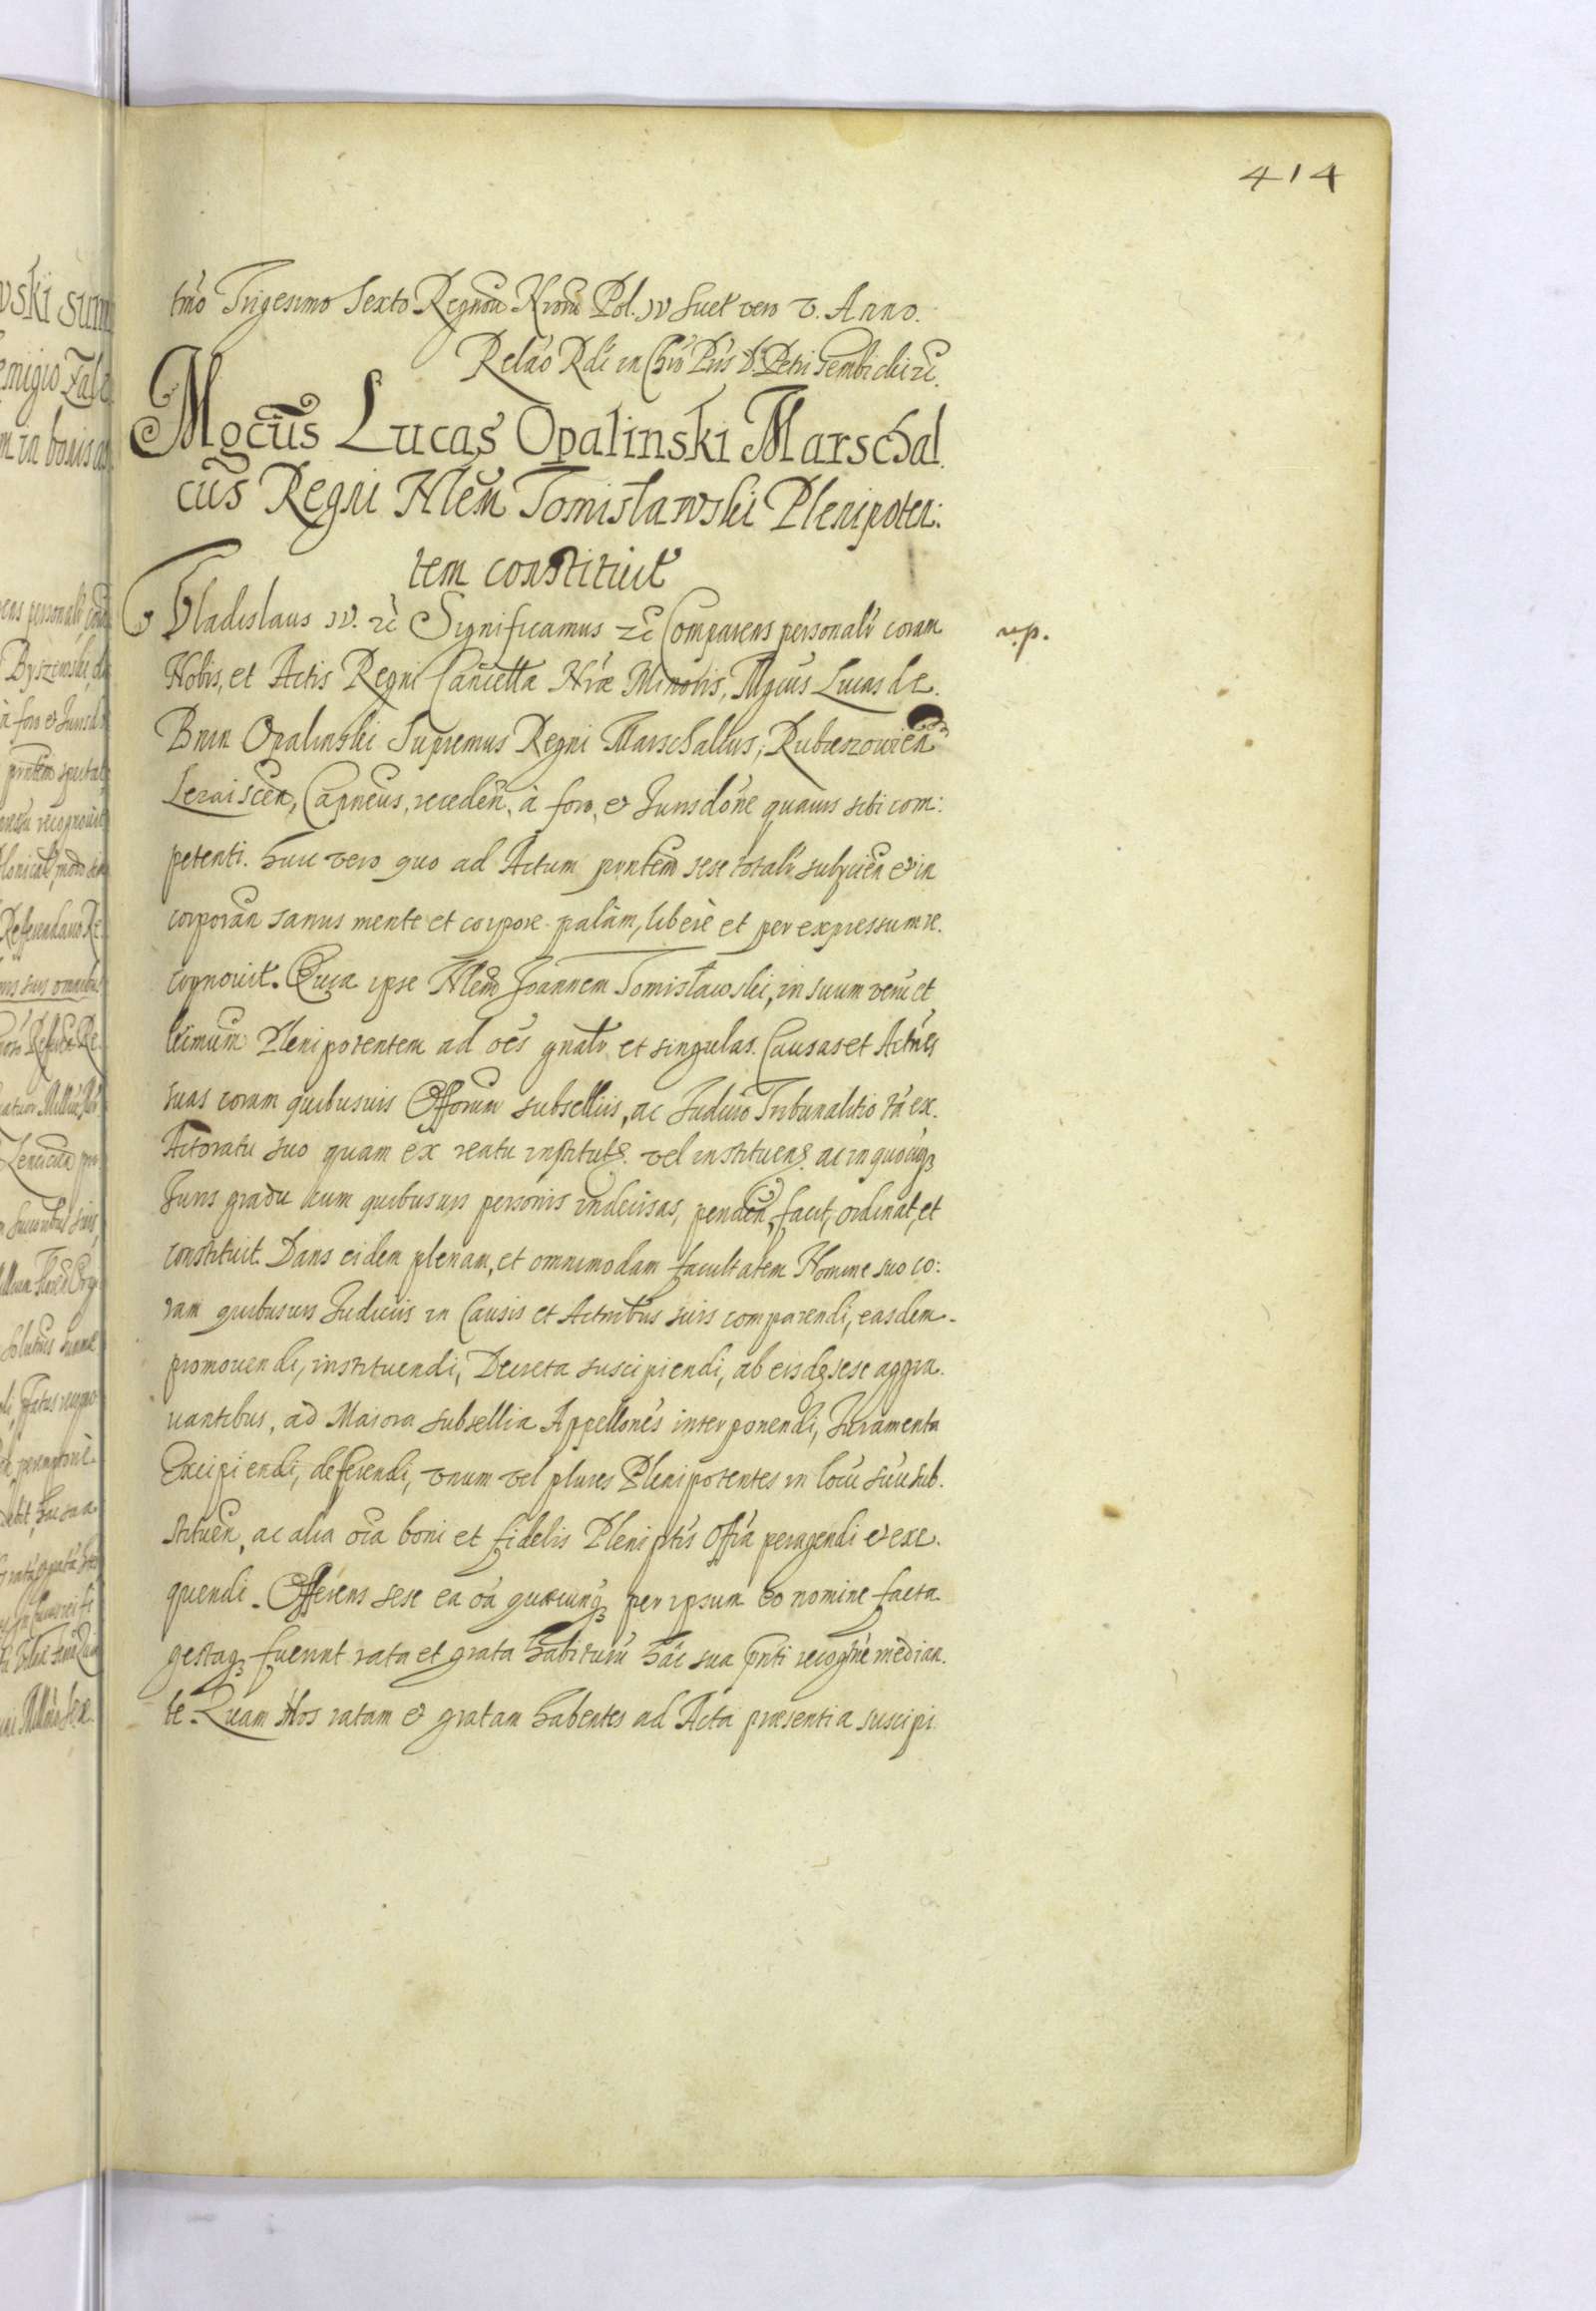 414
tmo Trigesimo Sexto Regnou Nrorū Pol. IV Suet vero V. Anno.
Relao Rdi in Chro Pris D. Petri Gembicki rc.
Mgcus Lucas Opalinski Marschal
cus Regni Nlem Tomisławski Plenipoten:
tem constituit
Vladislaus IV. rc Significamus rc Comparens personalr coram
n.p.
Nobis, et Actis Regni Cancellæ Nræ Minoris, Mgcus Lucas de
Bnin Opalinski Supremus Regni Marschallus, Rubieszovien
Leraiscen, Capneus, receden, à foro, et Jurisdone quavis sibi com:
petenti. huic vero quo ad Actum pntem sese totalr subycien et in
corporan sanus mente et corpore palàm, liberè et per expressum re.
cognovit. Quia ipse Nlem Joannem Tomisławski, in suum verū et
ltimum Plenipotentem ad oēs gnalr et singulas Causas et Actnes
suas coram quibusvis Offorum subselliis, ac Judicio Tribunalitio tā ex.
Actoratu suo quam ex reatu institut. vel instituen. ac in quocūqȝ
Juris gradu cum quibusvis personis indecisas, penden, facit, ordinat, et
constituit. Dans eidem plenam, et omnimodam facultatem Nomine suo co:
ram quibusvis Judiciis in Causis et Actnibus suis comparendi, easdem
promovendi, instituendi, Decreta suscipiendi, ab eisdē sese aggra.
vantibus, ad Maiora subsellia Appellones interponendi, Juramenta
Excipiendi, deferendi, vnum vel plures Plenipotentes in locū suū sub.
stituen, ac alia oīa boni et fidelis Pleniptis Offia peragendi et exe.
quendi. Offerens sese ea oīa quæcunqȝ per ipsum eo nomine facta
gestaqȝ fuerint rata et grata habiturū hāc sua pnti recogne median.
te. Quam Nos ratam et gratam habentes ad Acta præsentia suscipi